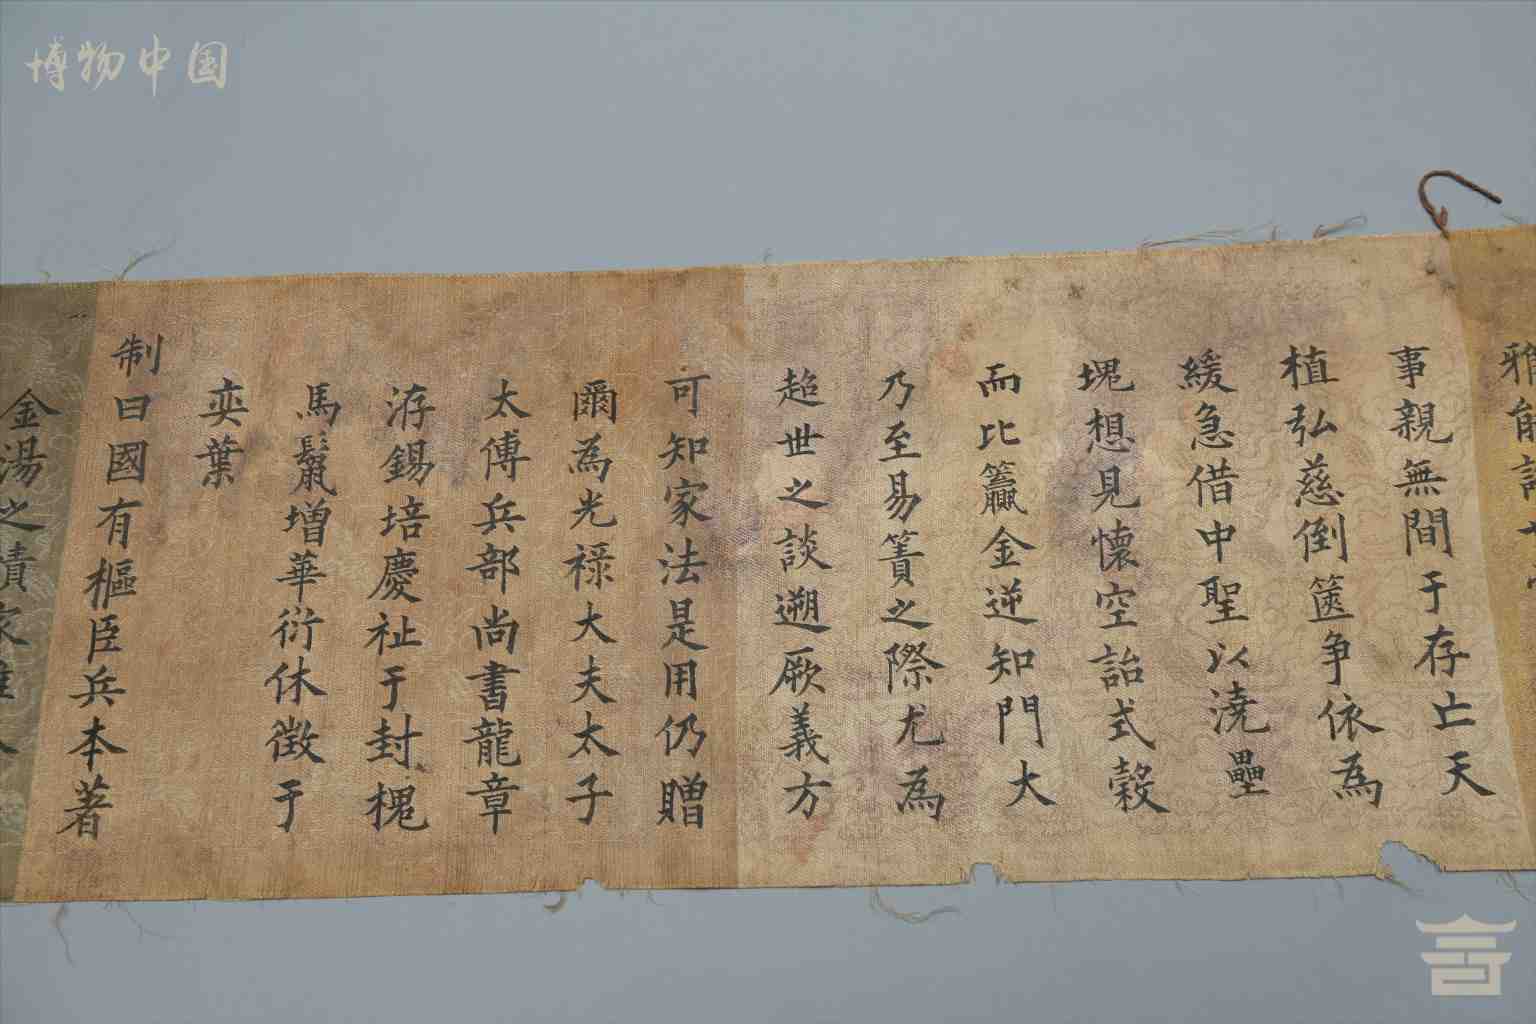 博物中国
雅能
事親無間于存亡天
植弘慈倒篋爭依為
緩急借中聖以澆壘
塊想見懷空詒式穀
而比籯金逆知門大
乃至易簀之際尤為
超世之談遡厥義方
可知家法是用仍贈
爾為光祿大夫太子
太傅兵部尚書龍章
洊錫培慶祉于封槐
馬鬣增華衍休徵于
奕葉
制曰國有樞臣兵本著
金湯之績家